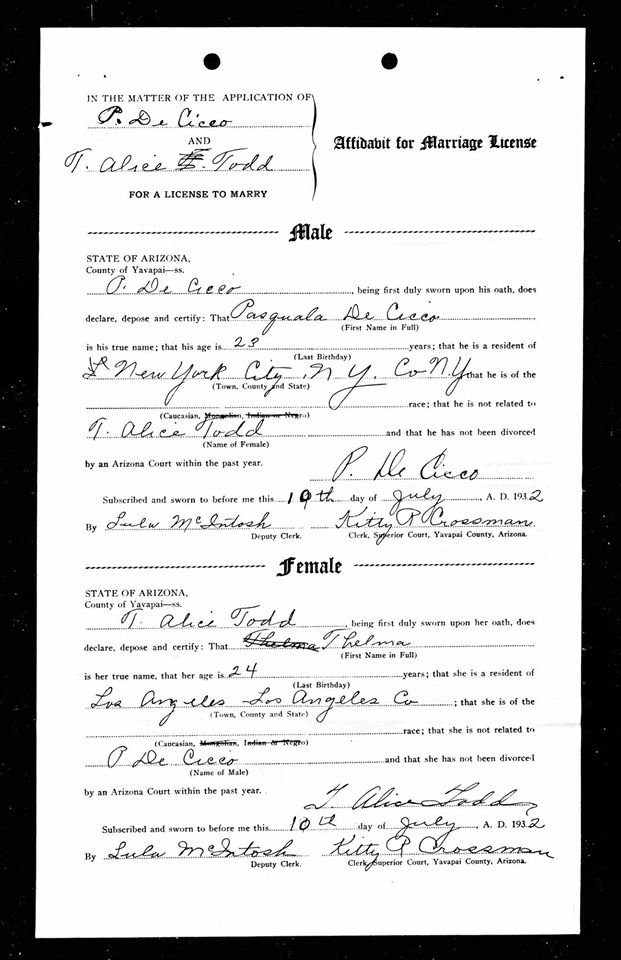 IN THE MATTER OF THE APPLICATION OF
P. De Cicco
AND
T. Alice Todd
FOR A LICENSE TO MARRY
Affidavit for Marriage License
Male
STATE OF ARIZONA,
County of Yavapai—ss.
P. De Cicco, being first duly sworn upon his oath, does
declare, depose and certify: That Pasquala De Cicco
(First Name in Full)
is his true name; that his age is 23 years; that he is a resident of
(Last Birthday)
New York City, N.Y. Co N.Y that he is of the
(Town, County and State)
race; that he is not related to
(Caucasian, Mongolian, Indian or Negro)
T. Alice Todd and that he has not been divorced
(Name of Female)
by an Arizona Court within the past year.
P. De Cicco
Subscribed and sworn to before me this 10th day of July, A. D. 1932
By Lula McIntosh Kitty R Crossman
Deputy Clerk. Clerk, Superior Court, Yavapai County, Arizona.
Female
STATE OF ARIZONA,
County of Yavapai—ss.
T. Alice Todd, being first duly sworn upon her oath, does
declare, depose and certify: That Thelma Thelma
(First Name in Full)
is her true name, that her age is 24 years; that she is a resident of
(Last Birthday)
Los Angeles Los Angeles Co; that she is of the
(Town, County and State)
race; that she is not related to
(Caucasian, Mongolian, Indian or Negro)
P De Cicco and that she has not been divorced
(Name of Male)
by an Arizona Court within the past year.
T. Alice Todd
Subscribed and sworn to before me this 10th day of July, A. D. 1932
By Lula McIntosh Kitty R Crossman
Deputy Clerk. Clerk, Superior Court, Yavapai County, Arizona.